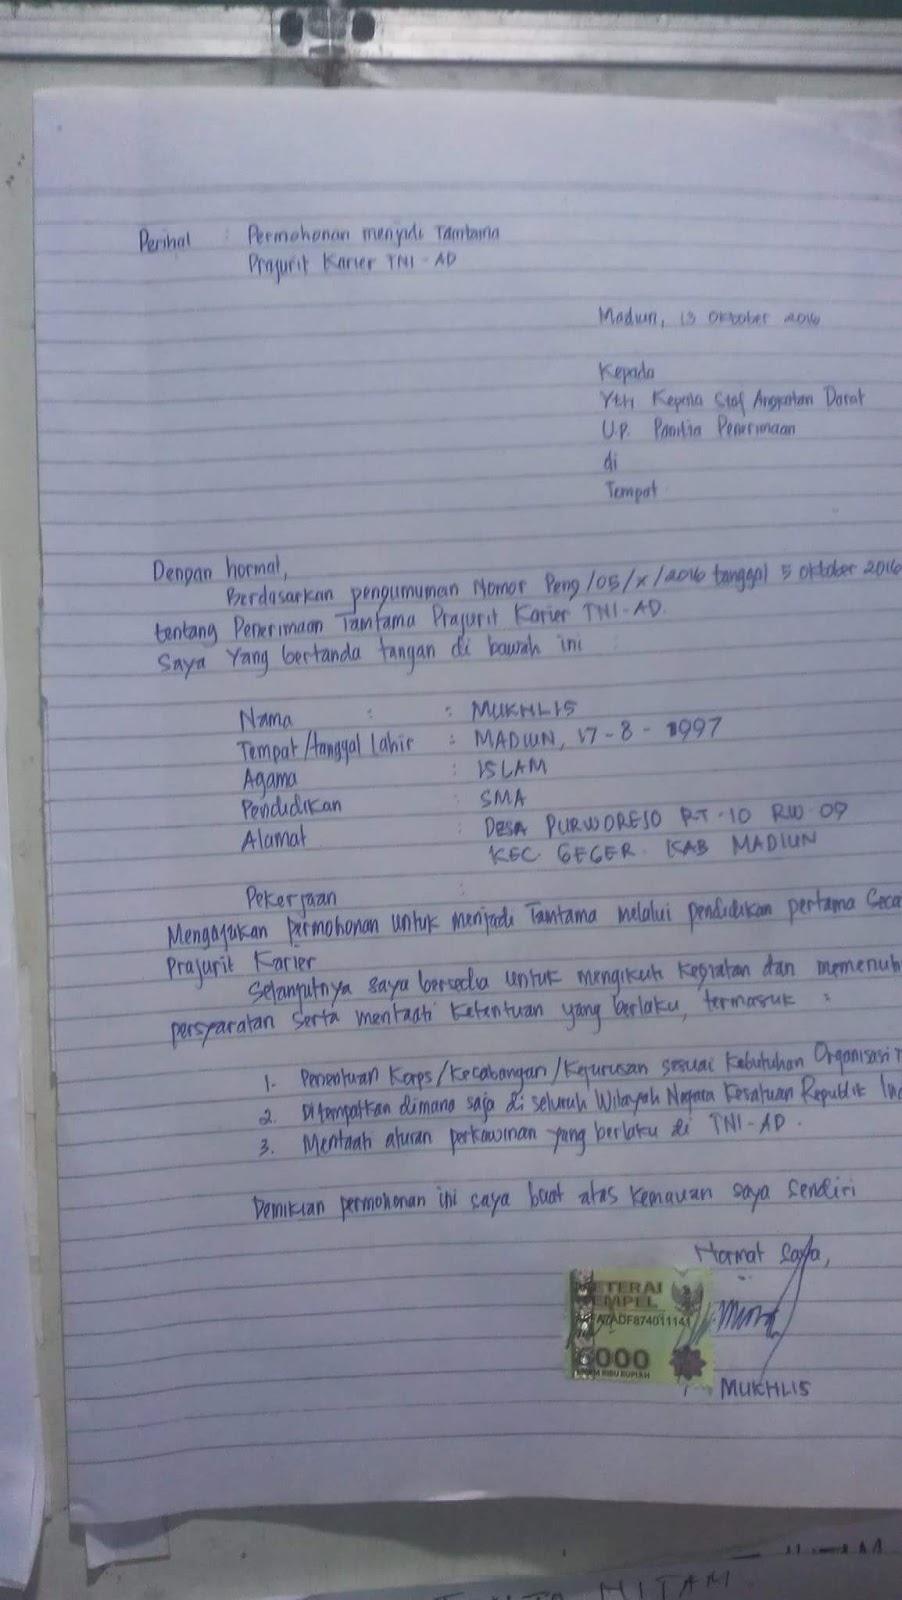 Perihal : Permohonan menjadi Tamtama
Prajurit Karier TNI-AD
Madiun, 13 Oktober 2016
Kepada
Yth Kepala Staf Angkatan Darat
U.P. Panitia Penerimaan
di
Tempat
Dengan hormat,
Berdasarkan pengumuman Nomor Peng/05/X/2016 tanggal 5 Oktober 2016
tentang Penerimaan Tamtama Prajurit Karier TNI-AD.
Saya Yang bertanda tangan di bawah ini :
Nama : : MUKHLIS
Tempat/tanggal lahir : MADIUN, 17-8-1997
Agama : ISLAM
Pendidikan : SMA
Alamat : DESA PURWOREJO RT.10 RW 09
KEC. GEGER. KAB MADIUN
Pekerjaan :
Mengajukan permohonan untuk menjadi Tamtama melalui pendidikan pertama Seca
Prajurit Karier
Selanjutnya saya bersedia untuk mengikuti kegiatan dan memenuh
persyaratan serta mentaati ketentuan yang berlaku, termasuk :
1. Penentuan Korps/Kecabangan/Kejurusan sesuai kebutuhan Organisasi T
2. Ditempatkan dimana saja di seluruh Wilayah Negara Kesatuan Republik Ind
3. Mentaati aturan perkawinan yang berlaku di TNI-AD.
Demikian permohonan ini saya buat atas kemauan saya sendiri
Hormat saya,
METERAI
TEMPEL
ADF874011141
6000
ENAM RIBU RUPIAH
MUKHLIS
HITAM